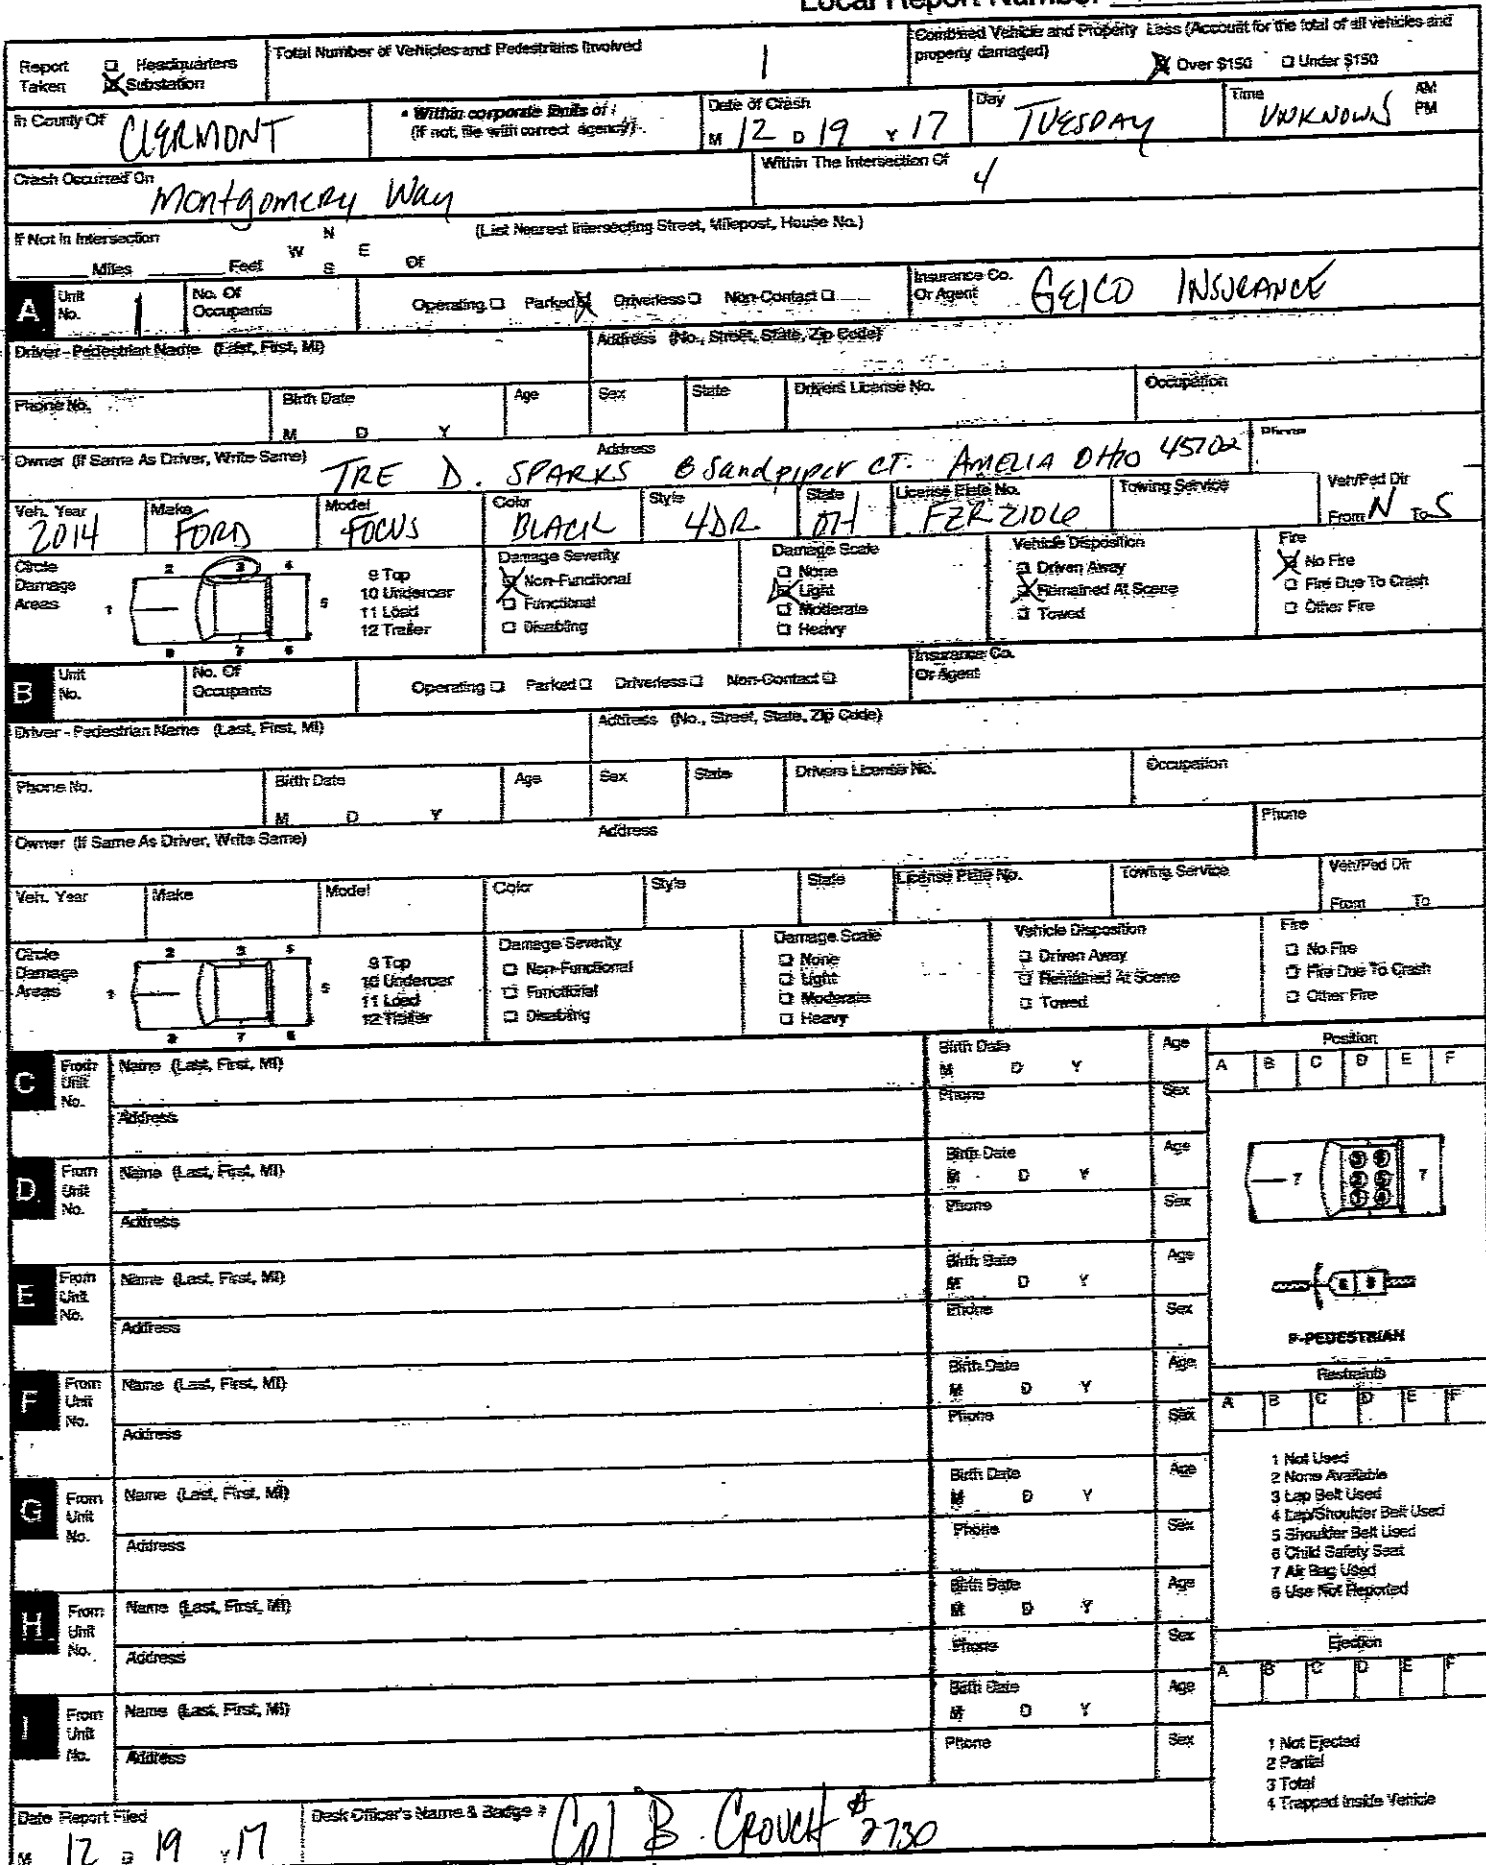 Local Report Number
Report Taken ☐ Headquarters ☒ Substation
Total Number of Vehicles and Pedestrians Involved 1
Combined Vehicle and Property Loss (Account for the total of all vehicles and property damaged) ☒ Over $150 ☐ Under $150
In County Of CLERMONT
• Within corporate limits of : (If not, file with correct agency)
Date of Crash M 12 D 19 Y 17
Day TUESDAY
Time UNKNOWN AM PM
Crash Occurred On Montgomery Way
Within The Intersection Of 4
If Not In Intersection
____ Miles ____ Feet N W E S Of (List Nearest Intersecting Street, Milepost, House No.)
A Unit No. 1 No. Of Occupants Operating ☐ Parked ☒ Driverless ☐ Non-Contact ☐ Insurance Co. Or Agent GEICO INSURANCE
Driver - Pedestrian Name (Last, First, MI) Address (No., Street, State, Zip Code)
Phone No. Birth Date M D Y Age Sex State Drivers License No. Occupation
Owner (If Same As Driver, Write Same) TRE D. SPARKS Address 8 Sandpiper CT. AMELIA OHIO 45102 Phone
Veh. Year 2014 Make FORD Model FOCUS Color BLACK Style 4DR State OH License Plate No. FZR2106 Towing Service Veh/Ped Dir From N To S
Circle Damage Areas 1 2 3 4 5 6 7 8
9 Top
10 Undercar
11 Load
12 Trailer
Damage Severity ☒ Non-Functional ☐ Functional ☐ Disabling
Damage Scale ☐ None ☒ Light ☐ Moderate ☐ Heavy
Vehicle Disposition ☐ Driven Away ☒ Remained At Scene ☐ Towed
Fire ☒ No Fire ☐ Fire Due To Crash ☐ Other Fire
B Unit No. No. Of Occupants Operating ☐ Parked ☐ Driverless ☐ Non-Contact ☐ Insurance Co. Or Agent
Driver - Pedestrian Name (Last, First, MI) Address (No., Street, State, Zip Code)
Phone No. Birth Date M D Y Age Sex State Drivers License No. Occupation
Owner (If Same As Driver, Write Same) Address Phone
Veh. Year Make Model Color Style State License Plate No. Towing Service Veh/Ped Dir From To
Circle Damage Areas 1 2 3 5 5 6 7 8
9 Top
10 Undercar
11 Load
12 Trailer
Damage Severity ☐ Non-Functional ☐ Functional ☐ Disabling
Damage Scale ☐ None ☐ Light ☐ Moderate ☐ Heavy
Vehicle Disposition ☐ Driven Away ☐ Remained At Scene ☐ Towed
Fire ☐ No Fire ☐ Fire Due To Crash ☐ Other Fire
C From Unit No. Name (Last, First, MI) Birth Date M D Y Age
Address Phone Sex
D. From Unit No. Name (Last, First, MI) Birth Date M D Y Age
Address Phone Sex
E From Unit No. Name (Last, First, MI) Birth Date M D Y Age
Address Phone Sex
F From Unit No. Name (Last, First, MI) Birth Date M D Y Age
Address Phone Sex
G From Unit No. Name (Last, First, MI) Birth Date M D Y Age
Address Phone Sex
H From Unit No. Name (Last, First, MI) Birth Date M D Y Age
Address Phone Sex
I From Unit No. Name (Last, First, MI) Birth Date M D Y Age
Address Phone Sex
Position
A B C D E F
7 7
P-PEDESTRIAN
Restraints
A B C D E F
1 Not Used
2 None Available
3 Lap Belt Used
4 Lap/Shoulder Belt Used
5 Shoulder Belt Used
6 Child Safety Seat
7 Air Bag Used
8 Use Not Reported
Ejection
A B C D E F
1 Not Ejected
2 Partial
3 Total
4 Trapped Inside Vehicle
Date Report Filed M 12 D 19 Y 17
Desk Officer's Name & Badge # Cpl B. CROUCH #2730